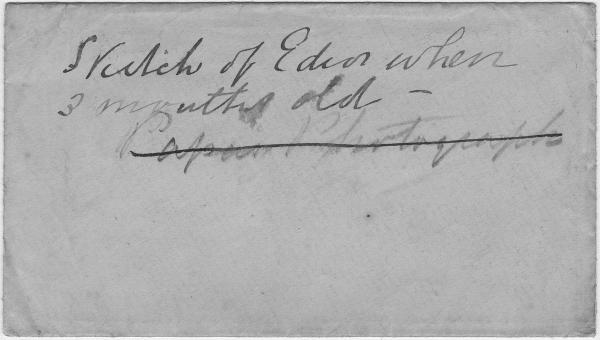 Sketch of Edwi when
3 months old —
Papa's Photograph